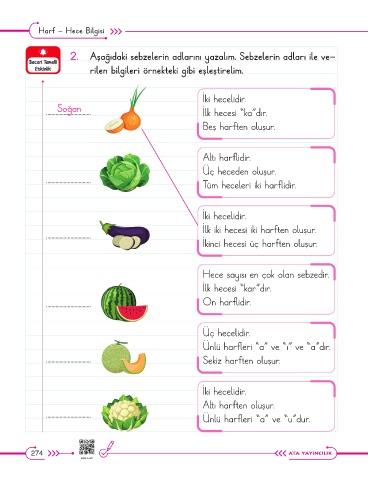 Harf – Hece Bilgisi
Beceri Temelli
Etkinlik
2. Aşağıdaki sebzelerin adlarını yazalım. Sebzelerin adları ile ve-
rilen bilgileri örnekteki gibi eşleştirelim.
Soğan
İki hecelidir.
İlk hecesi “ka”dır.
Beş harften oluşur.
Altı harflidir.
Üç heceden oluşur.
Tüm heceleri iki harflidir.
İki hecelidir.
İlk iki hecesi iki harften oluşur.
İkinci hecesi üç harften oluşur.
Hece sayısı en çok olan sebzedir.
İlk hecesi “kar”dır.
On harflidir.
Üç hecelidir.
Ünlü harfleri “a” ve “ı” ve “a”dır.
Sekiz harften oluşur.
İki hecelidir.
Altı harften oluşur.
Ünlü harfleri “a” ve “u”dur.
274
ATA YAYINCILIK